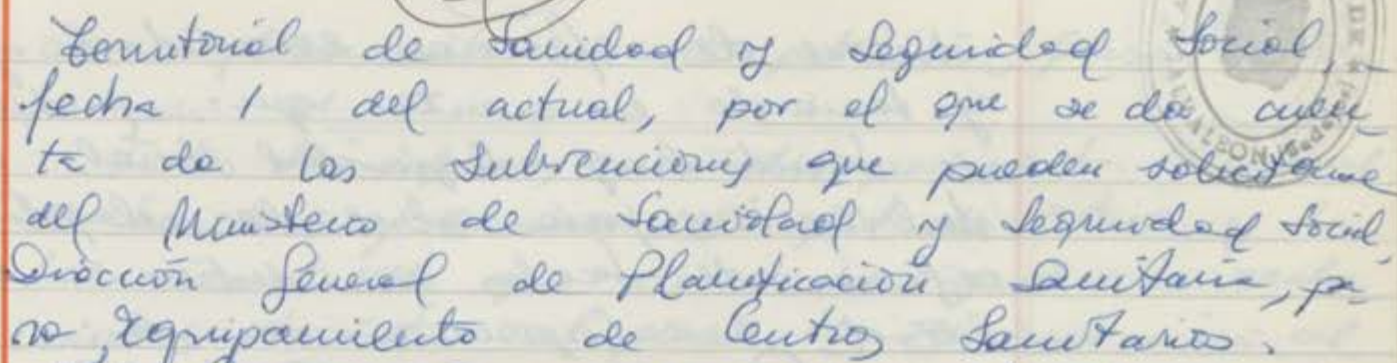 Territorial de Sanidad y Seguridad Social,
fecha 1 del actual, por el que se da cuen-
ta de las Subvenciones que pueden solicitarse
del Ministerio de Sanidad y Seguridad Social,
Dirección General de Planificación Sanitaria, pa-
ra Equipamiento de Centros Sanitarios.